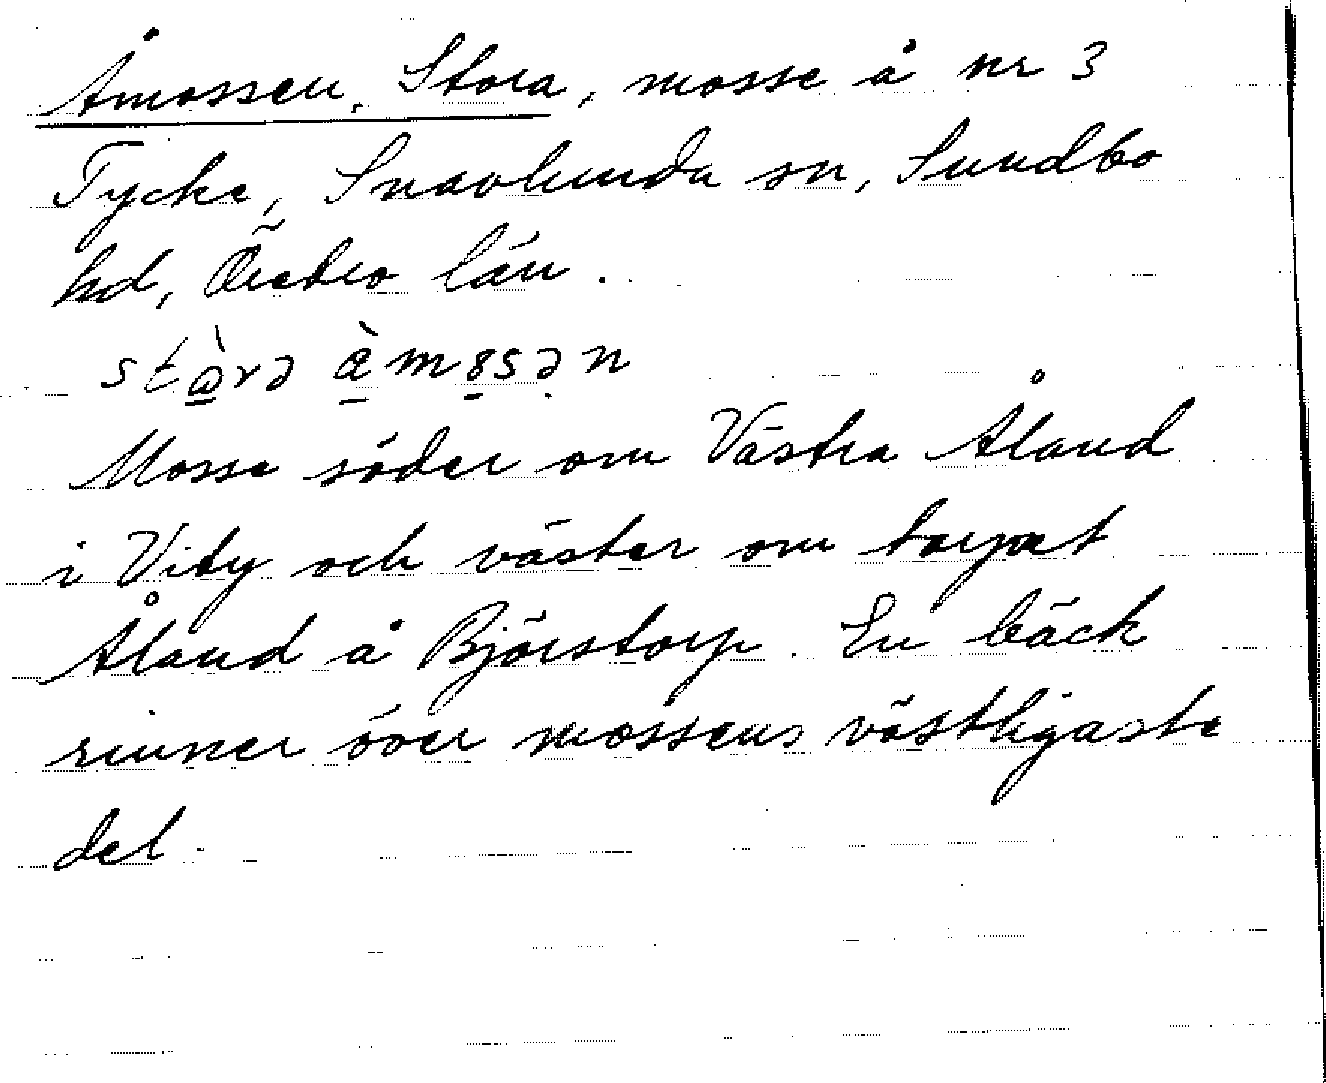 Åmossen, Stora, mosse å nr 3
Tycke, Snavlunda sn, Sundbo
hd, Örebro län.
stårə åmɷsən
Mosse söder om Västra Åland
i Viby och väster om torpet
Åland å Björstorp. En bäck
rinner över mossens västligaste
del.